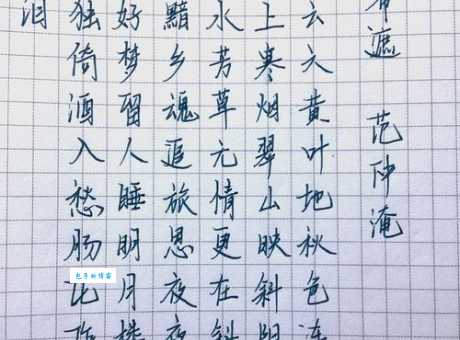 遮 范仲淹
云天黄叶地秋色连
上寒烟翠山映斜阳
水芳草无情更在斜
黯乡魂追旅思夜夜
好梦留人睡明月楼
独倚酒入愁肠化作
泪